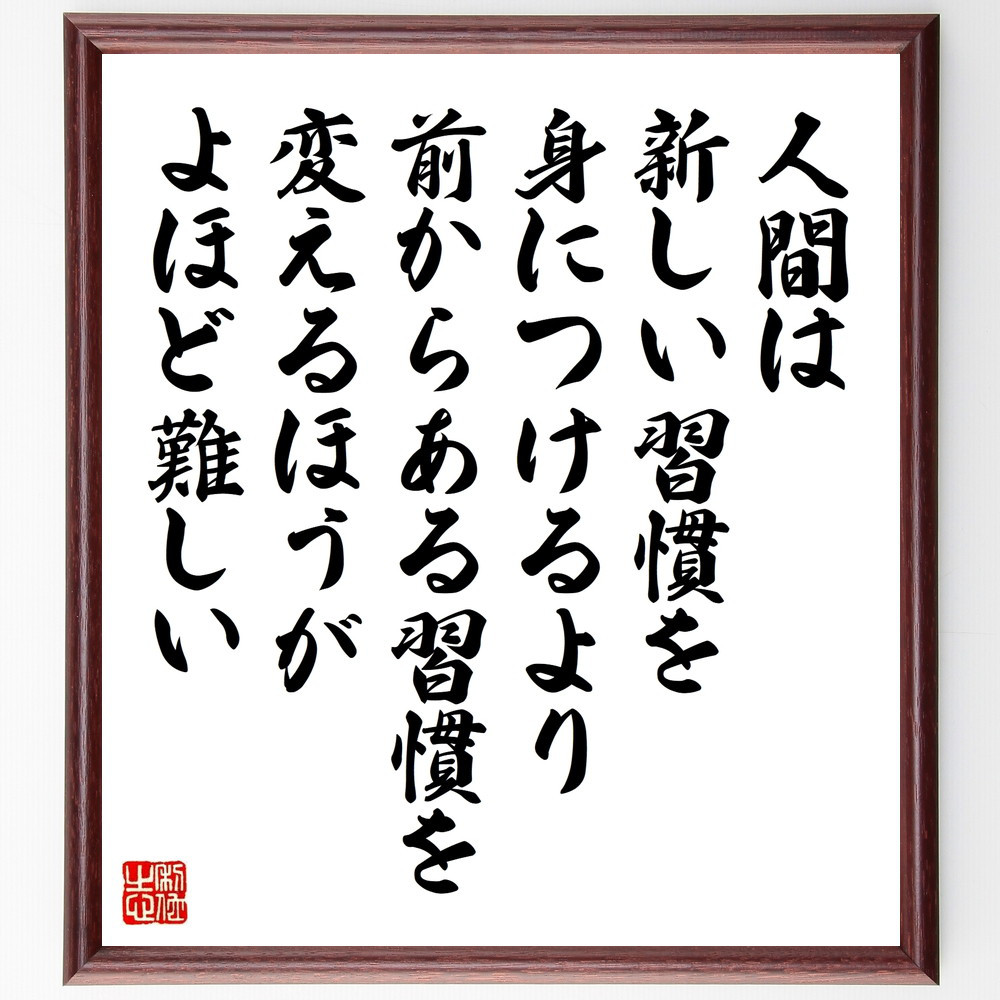 人間は
新しい習慣を
身につけるより
前からある習慣を
変えるほうが
よほど難しい